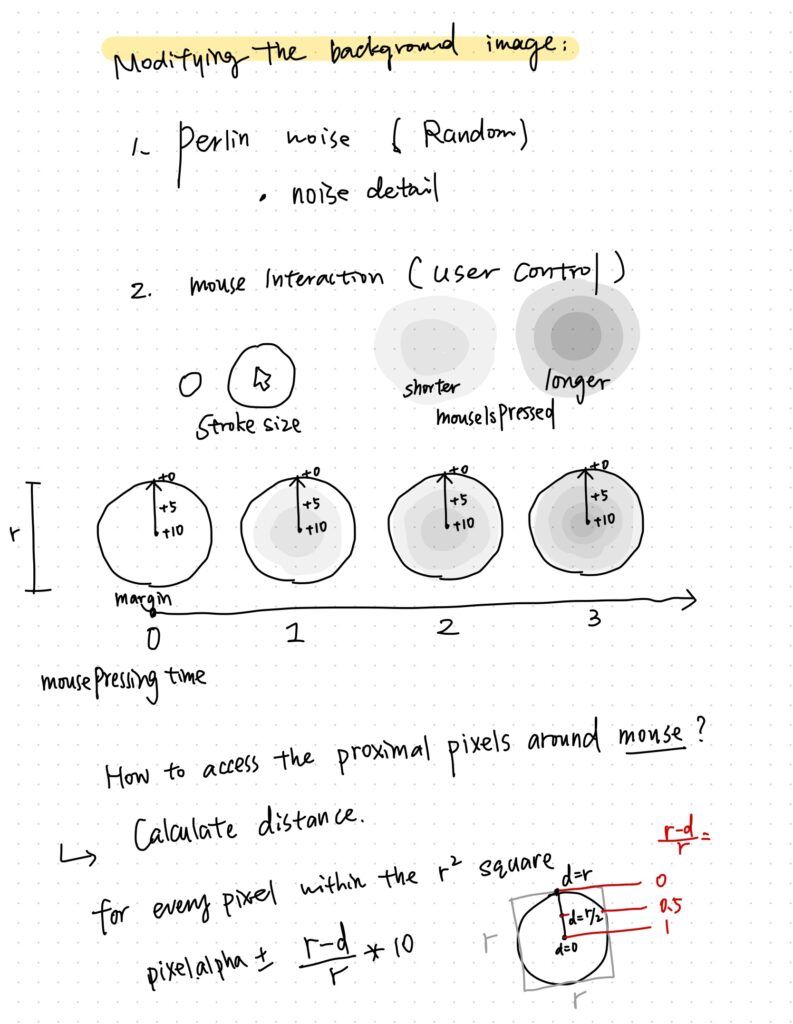 Modifying the background image:
1. Perlin noise (Random)
• noise detail
2. mouse Interaction (user control)
shorter
longer
Stroke size
mouseIspressed
+0
+5
+10
+0
+5
+10
+0
+5
+10
+0
+5
+10
r
margin
0
1
2
3
mouse pressing time
How to access the proximal pixels around mouse?
↳ Calculate distance.
for every pixel within the r² square
pixel.alpha ± (r-d)/r * 10
(r-d)/r =
d=r
0
d=r/2
0.5
d=0
1
r
r